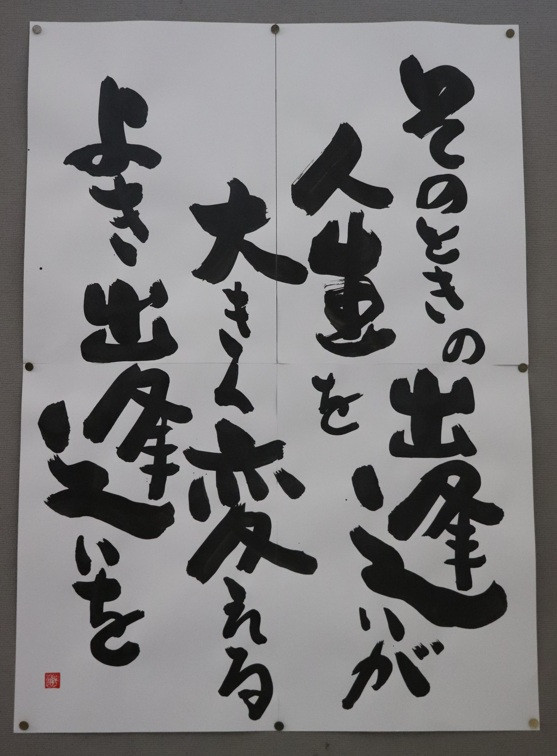 そのときの出逢いが
人生を
大きく変える
よき出逢いを